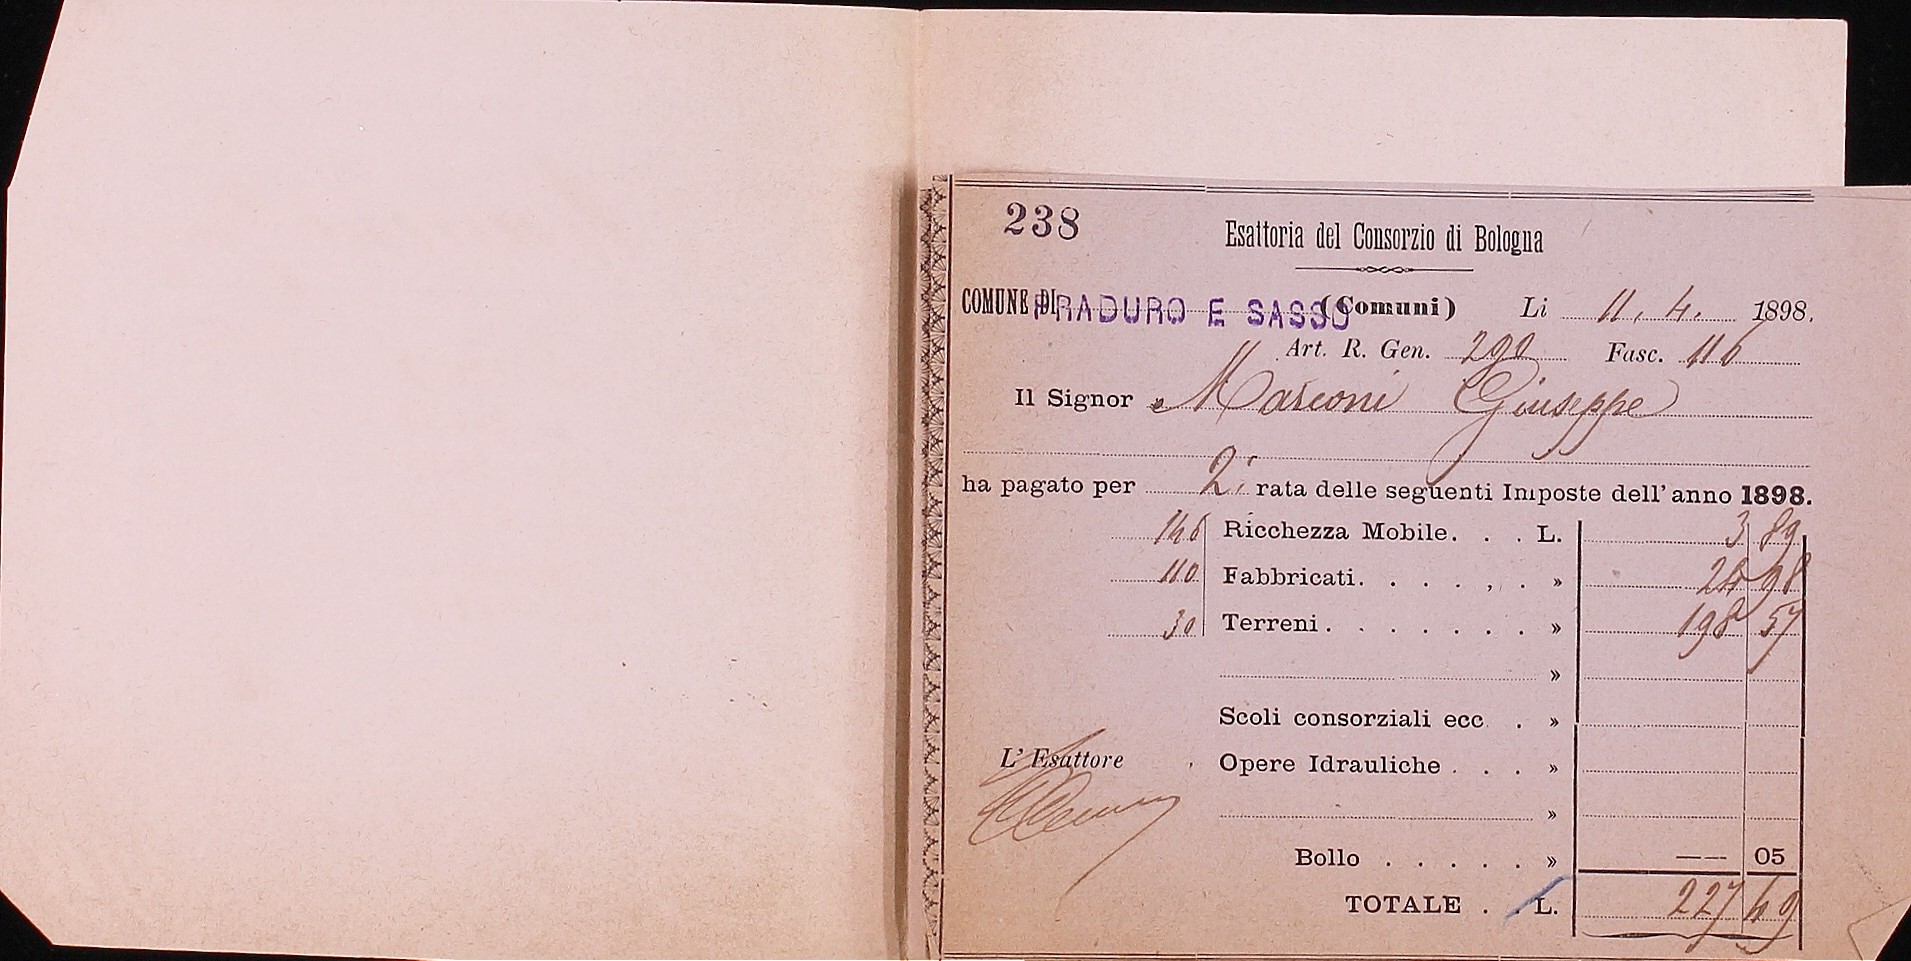 238
Esattoria del Consorzio di Bologna
COMUNE DI PRADURO E SASSO (Comuni) Li 11. 4. 1898.
Art. R. Gen. 290 Fasc. 116
Il Signor Marconi Giuseppe
ha pagato per 2ª rata delle seguenti Imposte dell'anno 1898.
146 Ricchezza Mobile. . . L. 3 89
110 Fabbricati. . . . , . » 24 98
30 Terreni . . . . . . . » 198 57
»
Scoli consorziali ecc . »
L' Esattore
Opere Idrauliche . . . »
»
Bollo . . . . . » — — 05
TOTALE . . L. 227 49